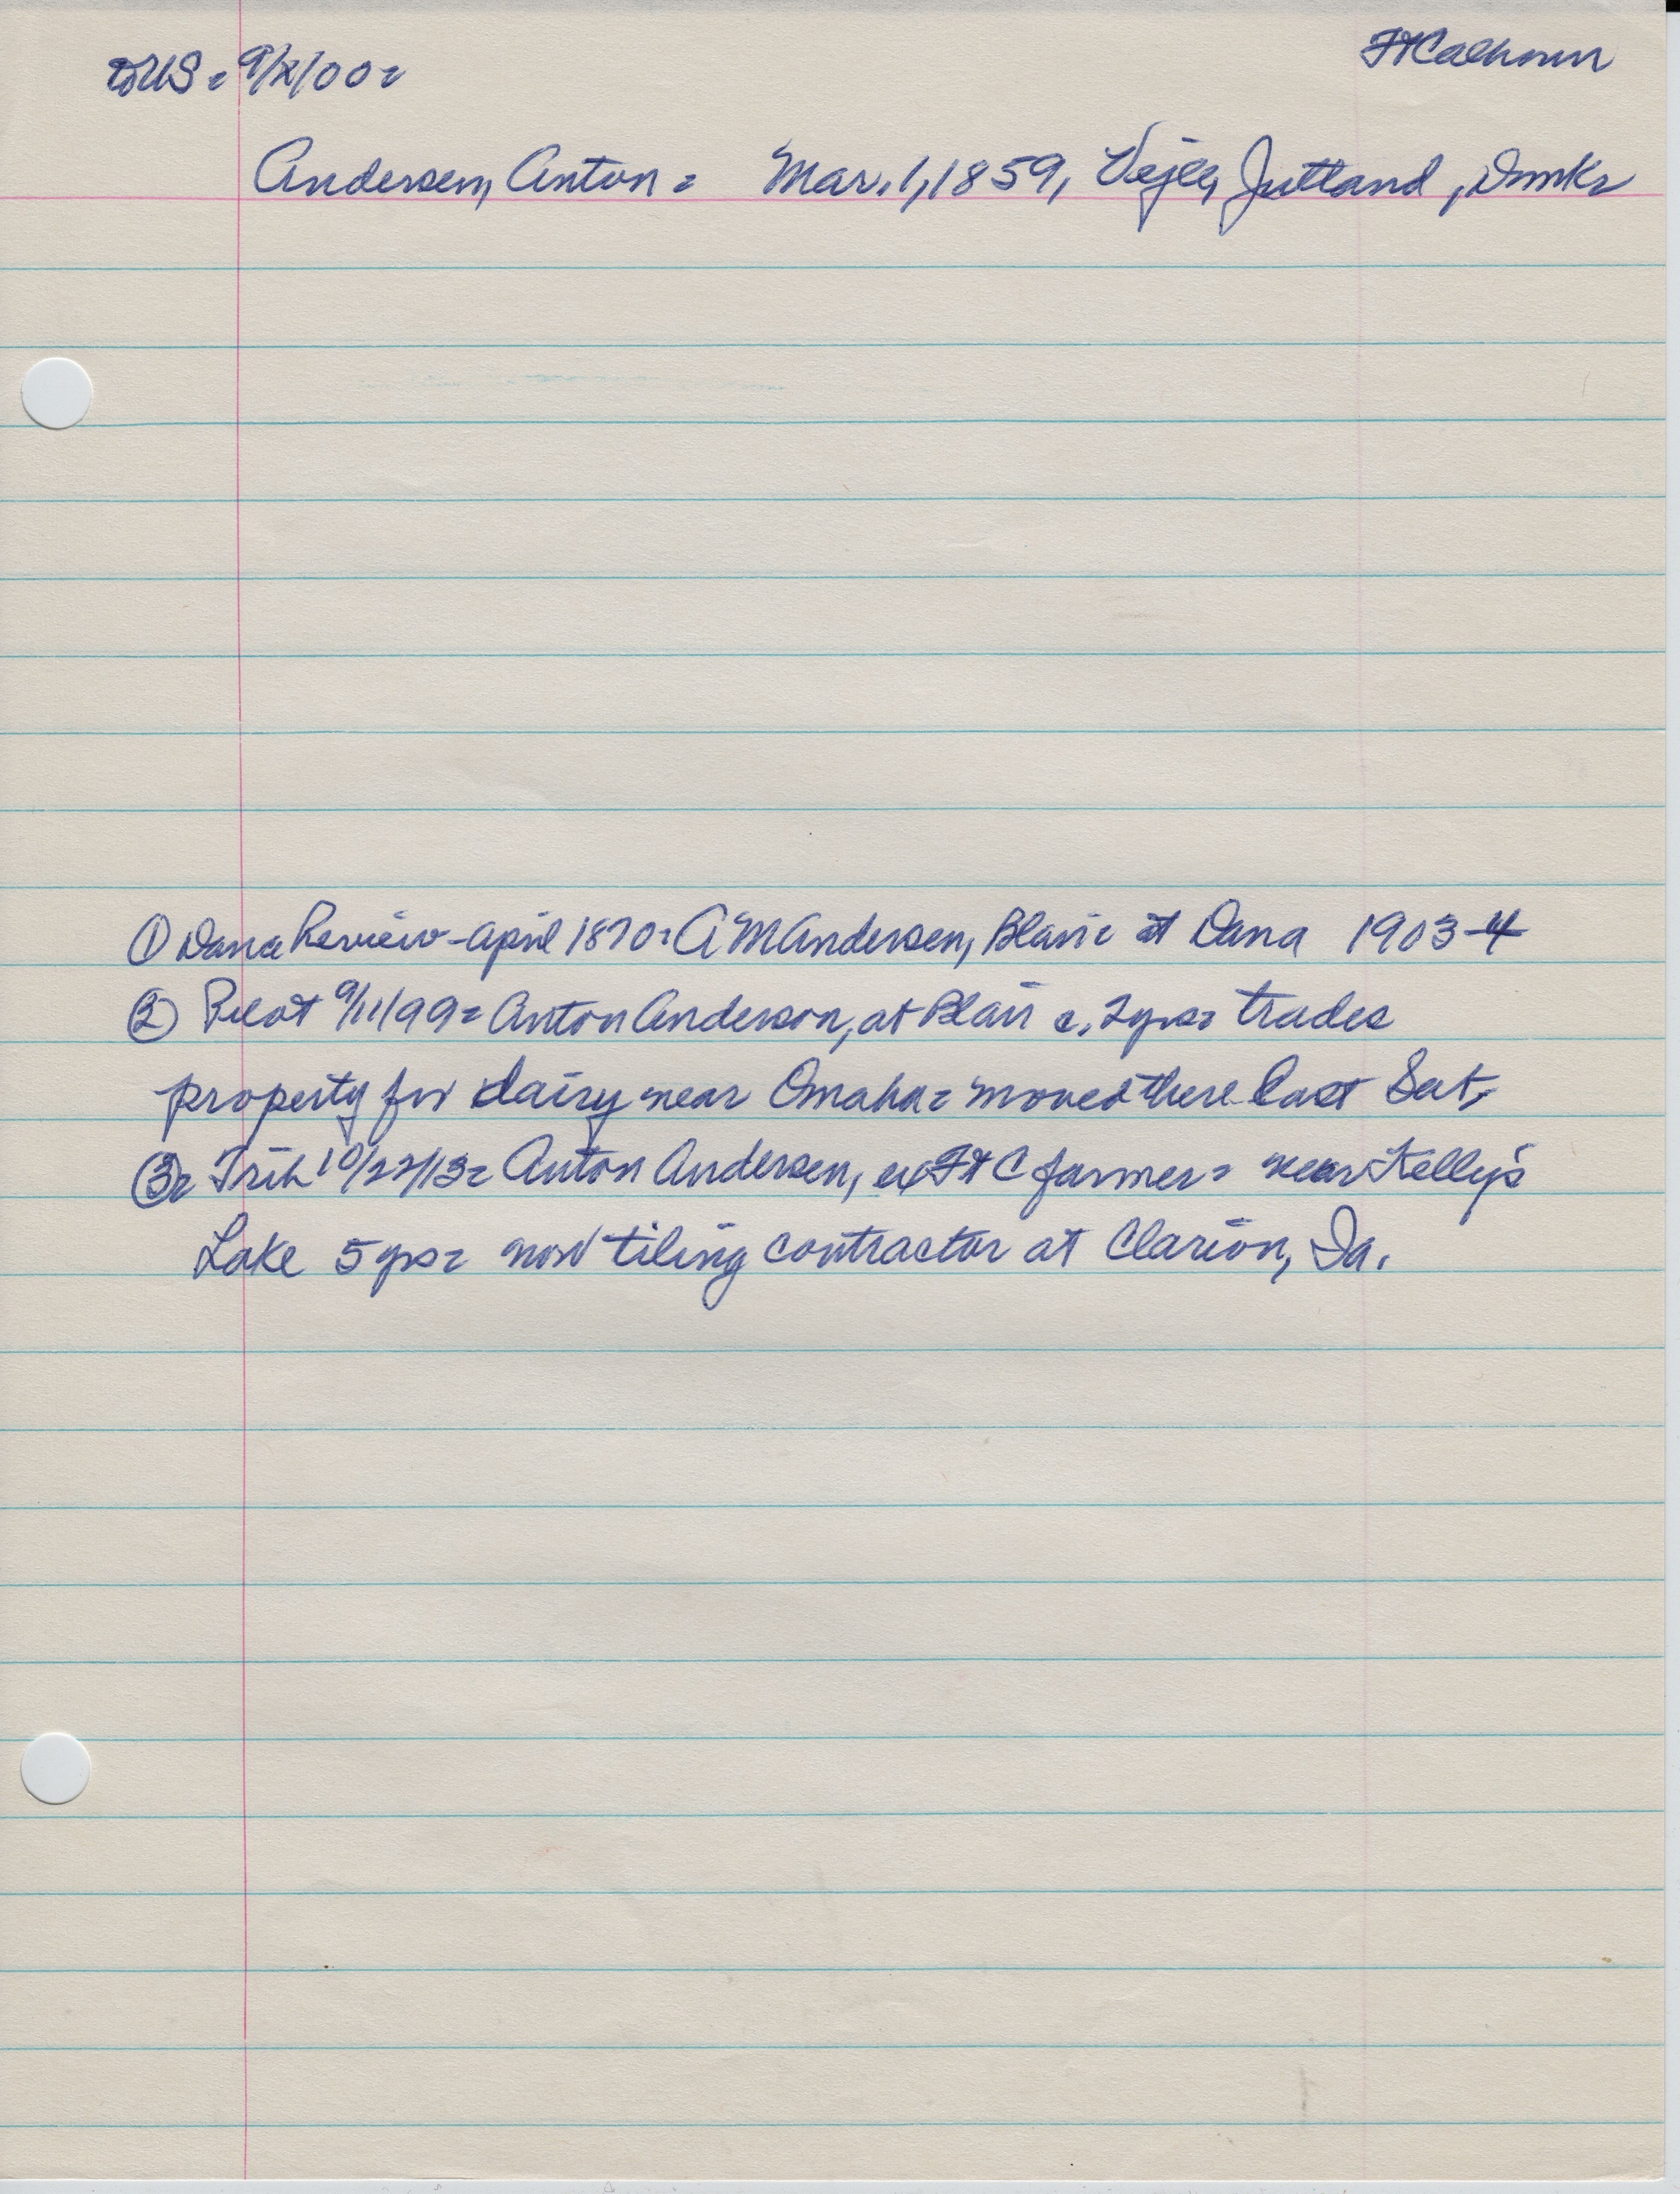 to US = 9/x/00 =
Ft Calhoun
Andersen, Anton = Mar. 1, 1859, Vejle, Jutland, Dnmk =
① Dana Review - April 1870 = A M Andersen, Blair = at Dana 1903-4
② Pilot 9/11/99 = Anton Anderson, at Blair c. 2 yrs = trades
property for dairy near Omaha = moved there last Sat.
③ = Trib 10/22/13 = Anton Andersen, ex Ft C farmer = near Kelly's
Lake 5 yrs = now tiling contractor at Clarion, Ia.